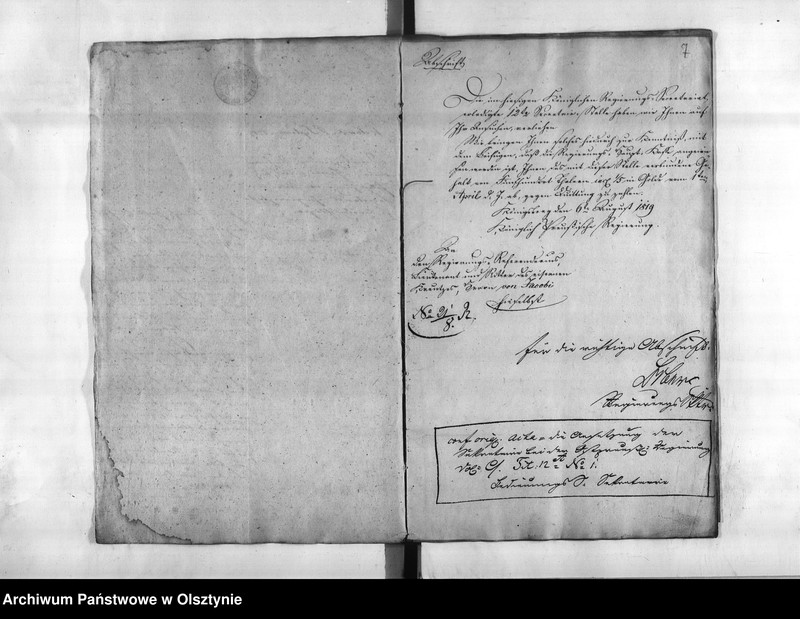 7
Abschrift
Die im hiesigen Königlichen Regierungs-Secretariat,
erledigte 12te Secretair, Stelle haben wir Ihnen auf
Ihr Ansuchen, verliehen
Wir bringen Ihnen solches hiedurch zur Kenntniß, mit
dem Beifügen, daß die Regierungs, Haupt, Kasse angewie
sen worden ist, Ihnen das mit dieser Stelle verbundene Ge
halt von Fünfhundert Thalern incl. in Golde vom 1ten
April d. J. ab, gegen Quittung zu zahlen.
Königsberg den 6ten August 1819
Königlich Preußische Regierung.
An
den Regierungs, Referendarius,
Lieutenant und Ritter des eisernen
Kreutzes, Herrn von Jacobi
hieselbst
No 21/8.
Für die richtige Abschrift.
Regierungs
conf. orig. Acta die Ansetzung der
Sekretaire bei der Ostpreuß. Regierung
Tit: 12 No 1.
Sekretaire
Archiwum Państwowe w Olsztynie